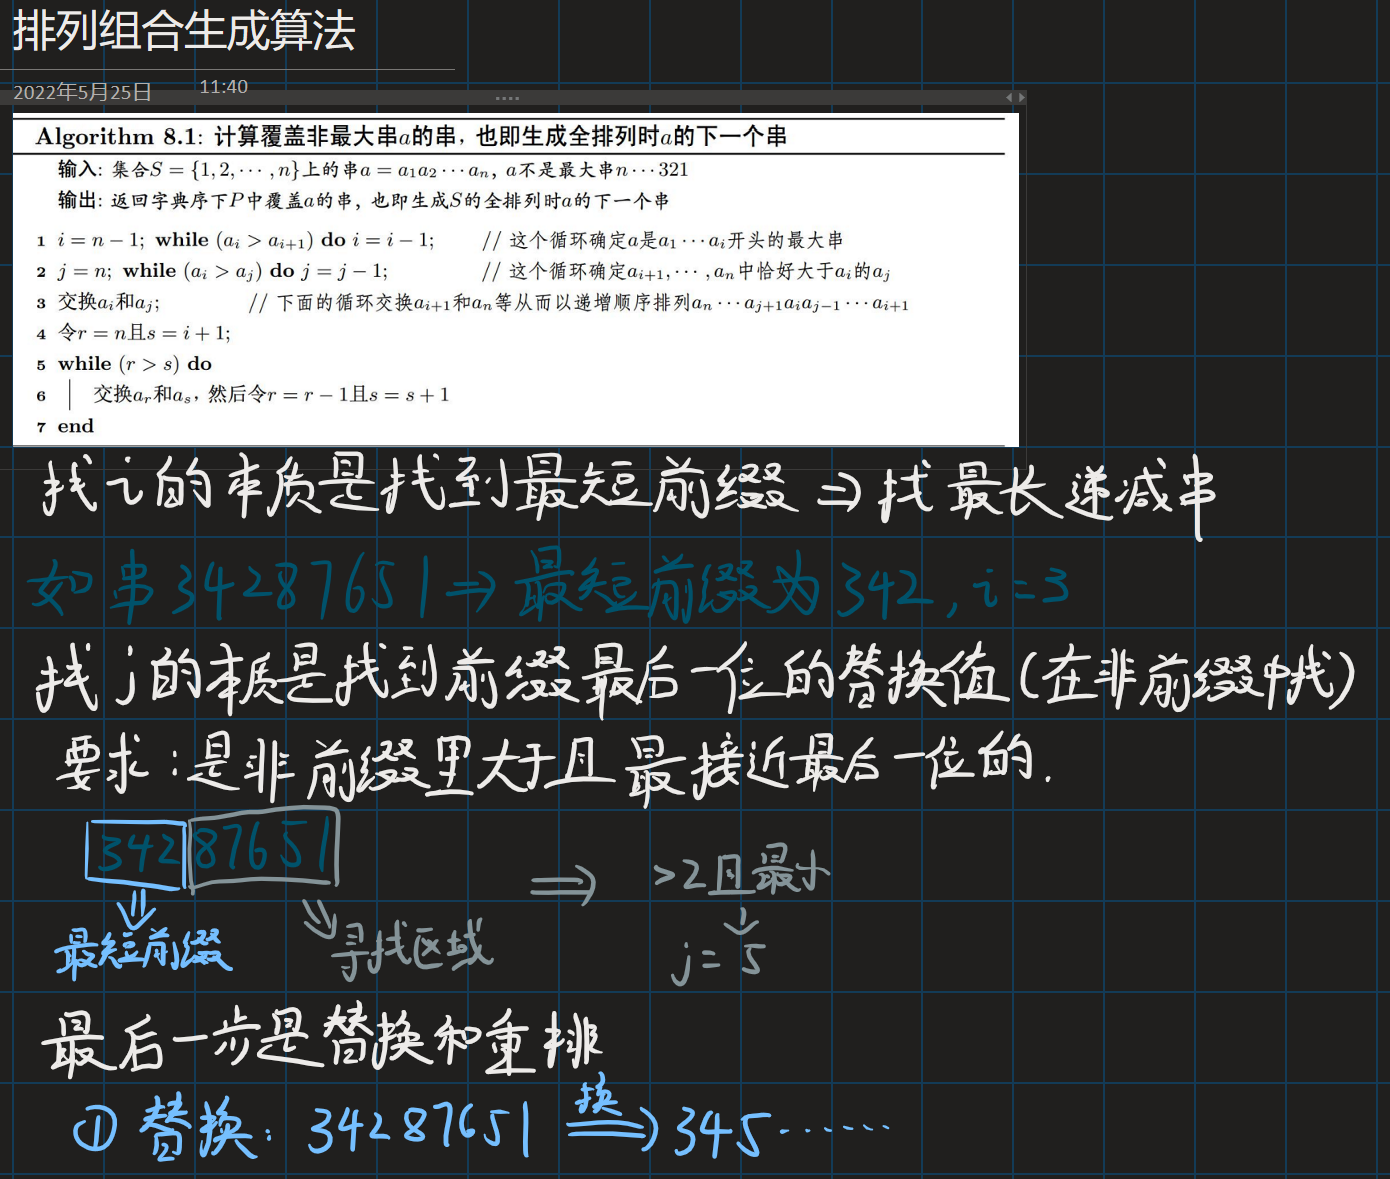 排列组合生成算法
2022年5月25日 11:40
Algorithm 8.1: 计算覆盖非最大串a的串，也即生成全排列时a的下一个串
输入: 集合S = {1, 2, ⋯ , n}上的串a = a₁a₂ ⋯ aₙ, a不是最大串n ⋯ 321
输出: 返回字典序下P中覆盖a的串, 也即生成S的全排列时a的下一个串
1 i = n − 1; while (aᵢ > aᵢ₊₁) do i = i − 1; // 这个循环确定a是a₁ ⋯ aᵢ开头的最大串
2 j = n; while (aᵢ > aⱼ) do j = j − 1; // 这个循环确定aᵢ₊₁, ⋯ , aₙ中恰好大于aᵢ的aⱼ
3 交换aᵢ和aⱼ; // 下面的循环交换aᵢ₊₁和aₙ等从而以递增顺序排列aₙ ⋯ aⱼ₊₁aᵢaⱼ₋₁ ⋯ aᵢ₊₁
4 令r = n且s = i + 1;
5 while (r > s) do
6 交换aᵣ和aₛ，然后令r = r − 1且s = s + 1
7 end
找i的本质是找到最短前缀⇒找最长递减串
如串34287651⇒最短前缀为342,i=3
找j的本质是找到前缀最后一位的替换值(在非前缀中找)
要求:是非前缀里大于且最接近最后一位的.
342 87651 ⇒ >2且最小
最短前缀 寻找区域 j=5
最后一步是替换和重排
① 替换: 34287651 换⇒ 345······